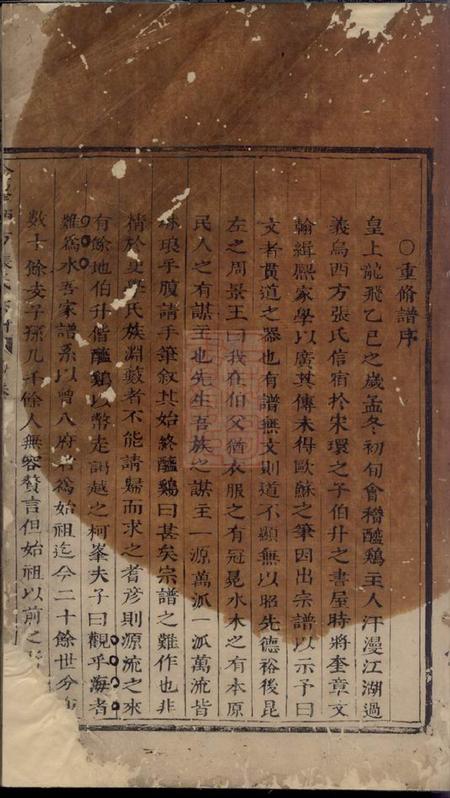 〇重脩譜序
皇上龍飛乙巳之歲孟冬初旬會稽醯鷄主人汗漫江湖過
義烏西方張氏信宿於宋環之子伯升之書屋時將奎章文
翰緝熙家學以廣其傳未得歐蘇之筆因出宗譜以示予曰
文者貫道之器也有譜無文則道不顯無以昭先德裕後昆
左之周景王曰我在伯父猶衣服之有冠冕水木之有本原
民人之有謀主也先生吾族之謀主一源萬派一派萬流皆
琳琅乎腹請手筆叙其始終醯鷄曰甚矣宗譜之難作也非
精於史學氏族淵藪者不能請歸而求之耆彥則源流之來
有餘地伯升偕醯鷄以幣走謁越之柯峯夫子曰觀乎海者
難為水吾家譜系以曾八府君為始祖迄今二十餘世分
數十餘支子孫几千餘人無容贅言但始祖以前之